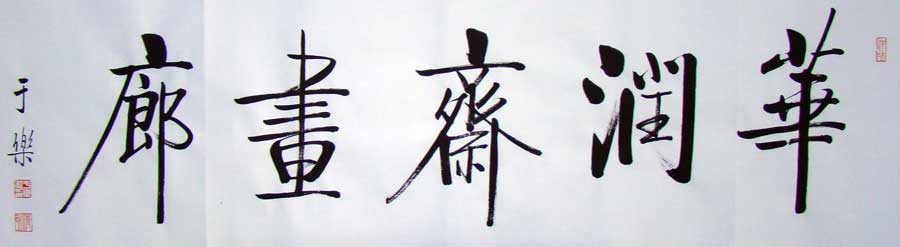 華潤齋畫廊
于樂